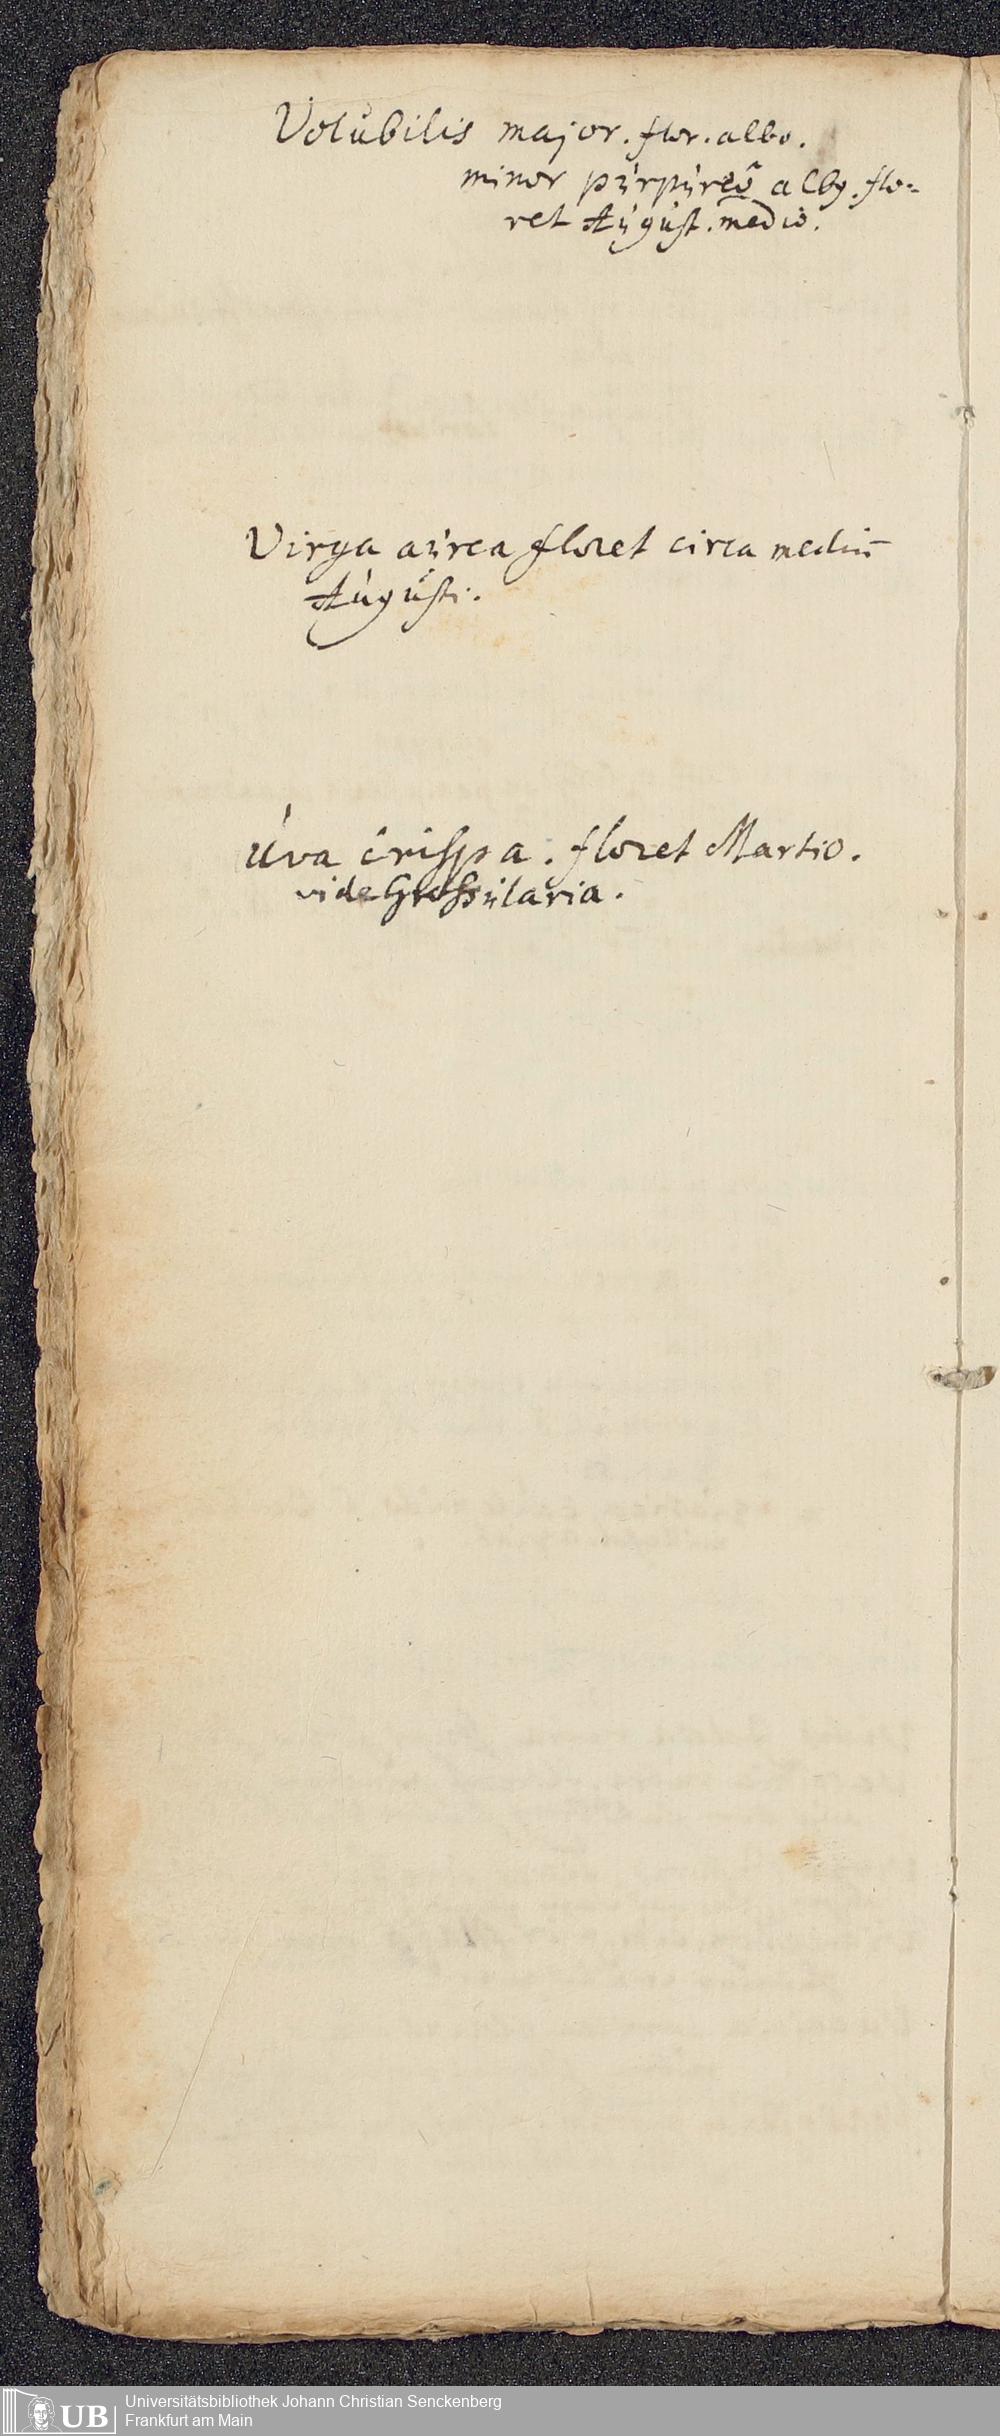 Volubilis major. flor. albo.
minor purpureo albo. flo-
ret August. medio.
Virga aurea floret circa mediū
Augusti.
Uva crispa. floret Martio.
vide Grossularia.
UB
Universitätsbibliothek Johann Christian Senckenberg
Frankfurt am Main